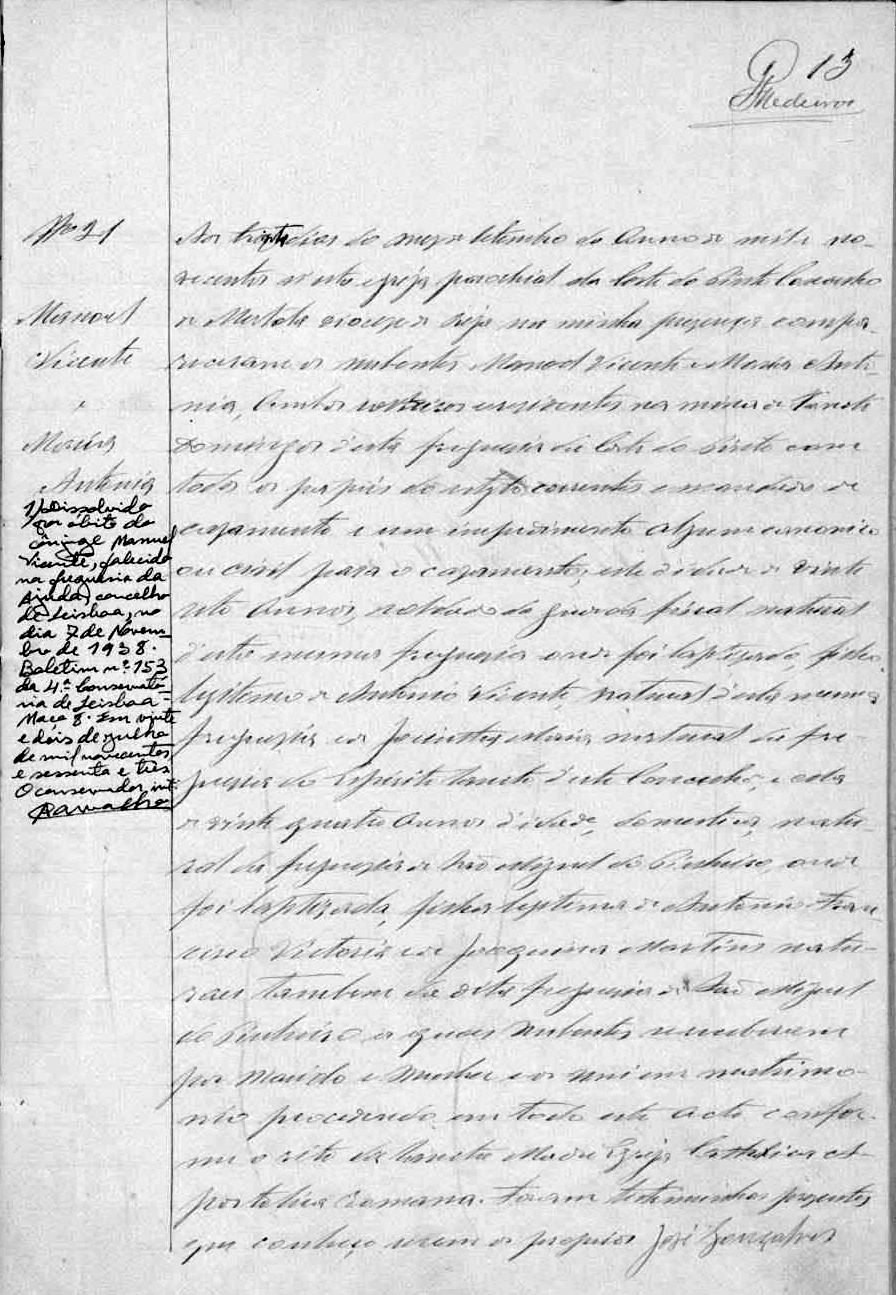 13
Medeiros
Nº 21
Manoel
Vicente
e
Maria
Antonia
1) Dissolvido
por óbito do
cônjuge Manuel
Vicente, falecido
na freguesia da
Ajuda, concelho
de Lisboa, no
dia 7 de Novem-
bro de 1938.
Boletim nº 153
da 4.ª Conservató-
ria de Lisboa -
Maço 8. Em vinte
e dois de julho
de mil novecentos
e sessenta e três
O conservador, int.
Ramalho
Aos trinta dias do mez de Setembro do Anno de mil e no-
vecentos n'esta egreja parochial da Corte do Pinto Concelho
de Mertola diocese de Beja na minha presença compa-
receram os nubentes Manoel Vicente e Maria Anto-
nia, Ambos solteiros e residentes na mina de Sam
Domingos d'esta freguesia da Corte do Pinto com
todos os papeis do estylo correntes e
casamento e sem impedimento algum canonico
ou civil para o casamento, elle d'idade de vinte
oito Annos, soldado da guarda fiscal natural
d'esta mesma freguezia onde foi baptizado, filho
legitimo de Antonio Vicente, natural d'esta mesma
freguezia e de Jacintha Maria natural da fre-
guezia do Espirito Santo d'este Concelho, e ella
de vinte quatro Annos d'idade, domestica, natu-
ral da freguezia de São Miguel do Pinheiro, onde
foi baptizada, filha legitima de Antonio Fran-
cisco Victoria e de Joaquina Martins natu-
raes tambem da dita freguezia de São Miguel
do Pinheiro os quaes nubentes se receberam
por Marido e Mulher e os uni em matrimo-
nio procedendo em todo este acto confor-
me o rito da Santa Madre Egreja Catholica A-
postolica Romana. Foram testemunhas presentes
que conheço serem os proprios José Gonçalves